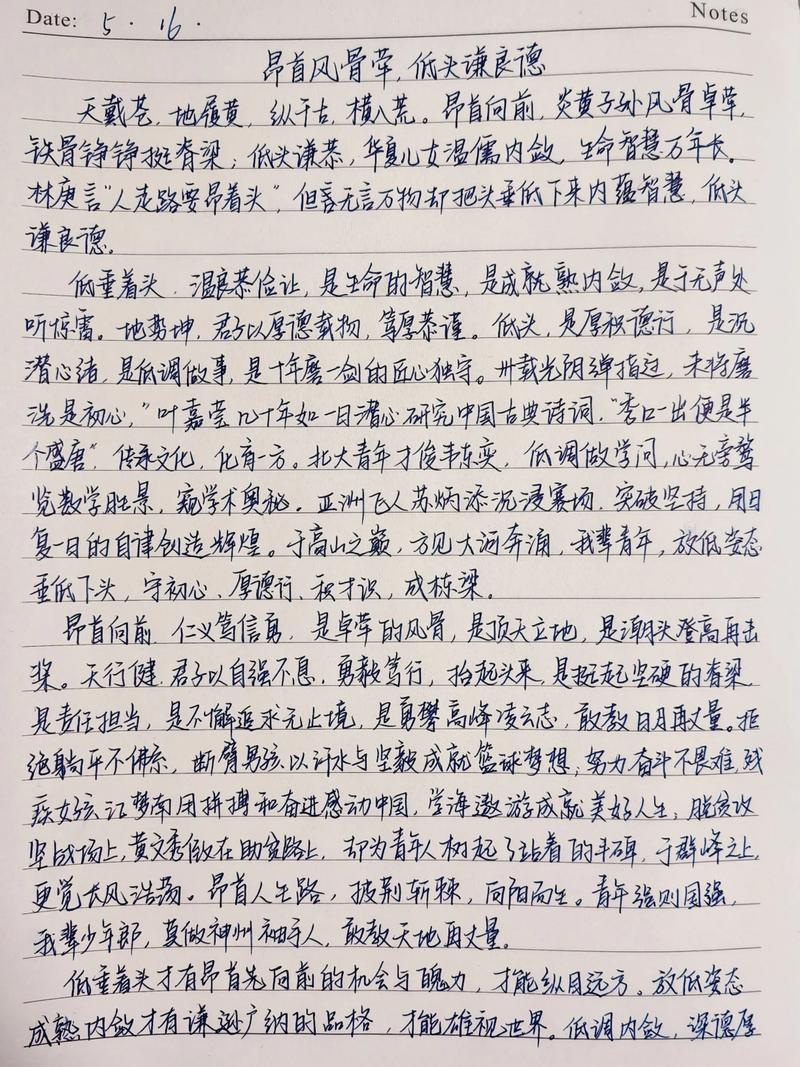 Date: 5.16.
Notes
昂首风骨荦，低头谦良德
天戴苍，地履黄，纵千古，横八荒。昂首向前，炎黄子孙风骨卓荦，
铁骨铮铮挺脊梁；低头谦恭，华夏儿女温儒内敛，生命智慧万年长。
林庚言“人走路要昂着头”，但言无言万物却把头垂低下来内蕴智慧，低头
谦良德。
低垂着头，温良恭俭让，是生命的智慧，是成就熟内敛，是于无声处
听惊雷。地势坤，君子以厚德载物，笃厚恭谨。低头，是厚积德行，是沉
潜心绪，是低调做事，是十年磨一剑的匠心独守。卅载光阴弹指过，未将磨
洗是初心，”叶嘉莹几十年如一日潜心研究中国古典诗词，“秀口一出便是半
个盛唐”，传承文化，化育一方。北大青年才俊韦东奕，低调做学问，心无旁骛
览数学胜景，窥学术奥秘。亚洲飞人苏炳添沉浸赛场，突破坚持，用日
复一日的自律创造辉煌。于高山之巅，方见大河奔涌，我辈青年，放低姿态
垂低下头，守初心、厚德行、积才识，成栋梁。
昂首向前，仁义笃信勇，是卓荦的风骨，是顶天立地，是潮头登高再击
桨。天行健，君子以自强不息，勇毅笃行，抬起头来，是挺起坚硬的脊梁
是责任担当，是不懈追求无止境，是勇攀高峰凌云志，敢教日月再丈量。拒
绝躺平不佛系，断臂男孩以汗水与坚毅成就篮球梦想；努力奋斗不畏难，残
疾女孩江梦南用拼搏和奋进感动中国，学海遨游成就美好人生；脱贫攻
坚战场上，黄文秀倒在助贫路上，却为青年人树起了站着的丰碑，于群峰之上，
更觉长风浩荡。昂首人生路，披荆斩棘，向阳而生。青年强则国强，
我辈少年郎，莫做神州袖手人，敢教天地再丈量。
低垂着头才有昂首先向前的机会与魄力，才能纵目远方。放低姿态
成熟内敛才有谦逊广纳的品格，才能雄视世界。低调内敛，深德厚